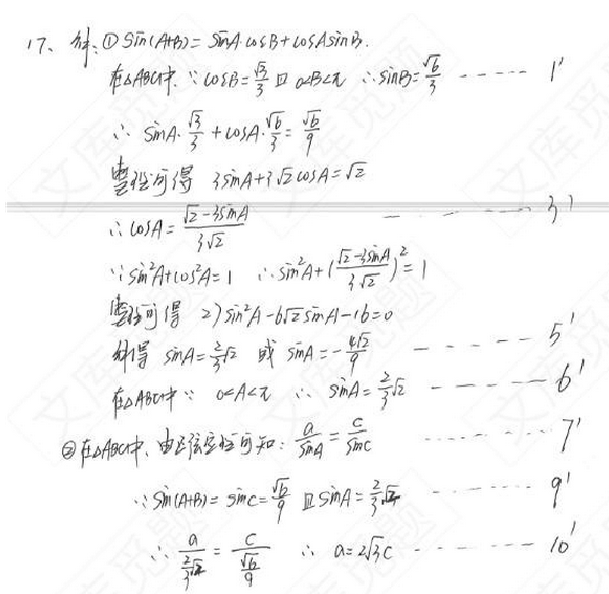 17、解:①Sin(A+B)=sinA·cosB+cosAsinB.
在△ABC中,∵cosB=√3/3 且 0<B<π ∴sinB=√6/3 ----- 1'
∴ sinA·√3/3+cosA·√6/3=√6/9
整理可得 3sinA+3√2cosA=√2
∴cosA=(√2-3sinA)/(3√2) ----- 3'
∵sin²A+cos²A=1 ∴sin²A+((√2-3sinA)/(3√2))²=1
整理可得 27sin²A-6√2sinA-16=0
解得 sinA=2/3√2 或 sinA=-4√2/9 ----- 5'
在△ABC中∵ 0<A<π ∴ sinA=2/3√2 ----- 6'
②在△ABC中,由正弦定理可知: a/sinA=c/sinC ----- 7'
∵Sin(A+B)=sinC=√6/9 且sinA=2/3√2 ----- 9'
∴ a/(2/3√2)=c/(√6/9) ∴ a=2√3c ----- 10'
文库觅题